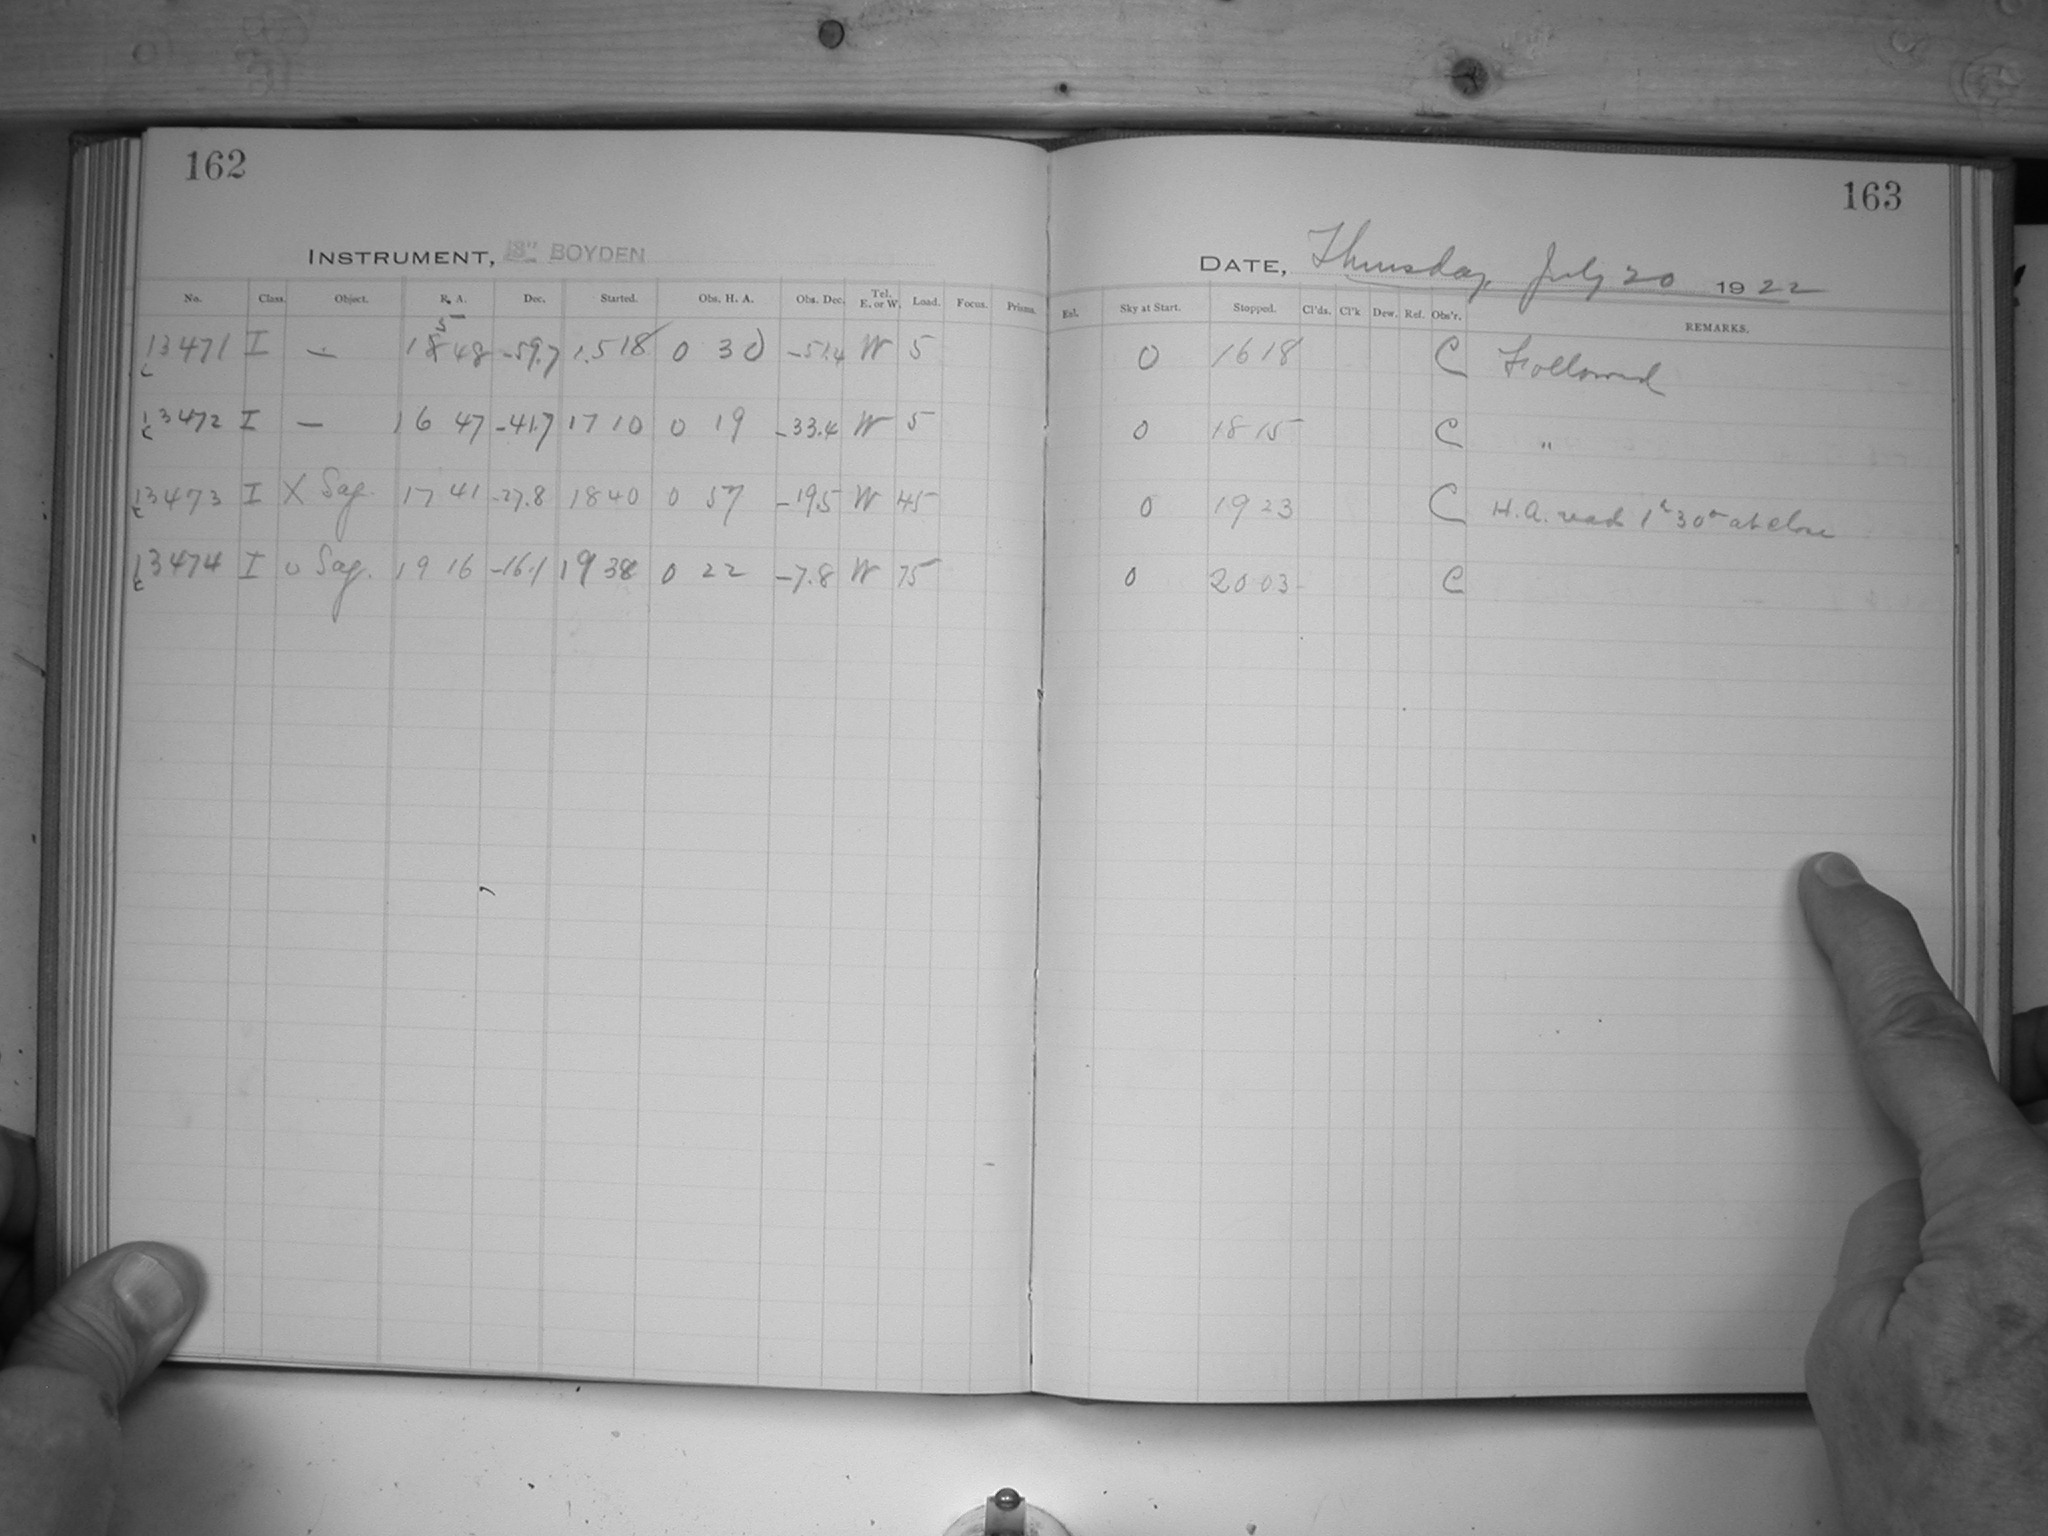 162
INSTRUMENT, 13" BOYDEN
No. Class. Object. R. A. Dec. Started. Obs. H. A. Obs. Dec. Tel. E. or W. Load. Focus. Prisms.
5
13471 I — 18 48 -59.7 15 18 0 30 -51.4 W 5
c
13472 I — 16 47 -41.7 17 10 0 19 -33.4 W 5
c
13473 I X Sag. 17 41 -27.8 18 40 0 57 -19.5 W 45
c
13474 I υ Sag. 19 16 -16.1 19 38 0 22 -7.8 W 75
c
163
DATE, Thursday, July 20 1922
Exl. Sky at Start. Stopped. Cl'ds. Cl'k Dew. Ref. Obs'r. REMARKS.
0 16 18 C Followed
0 18 15 C "
0 19 23 C H.A. read 1h 30m at close
0 20 03 C